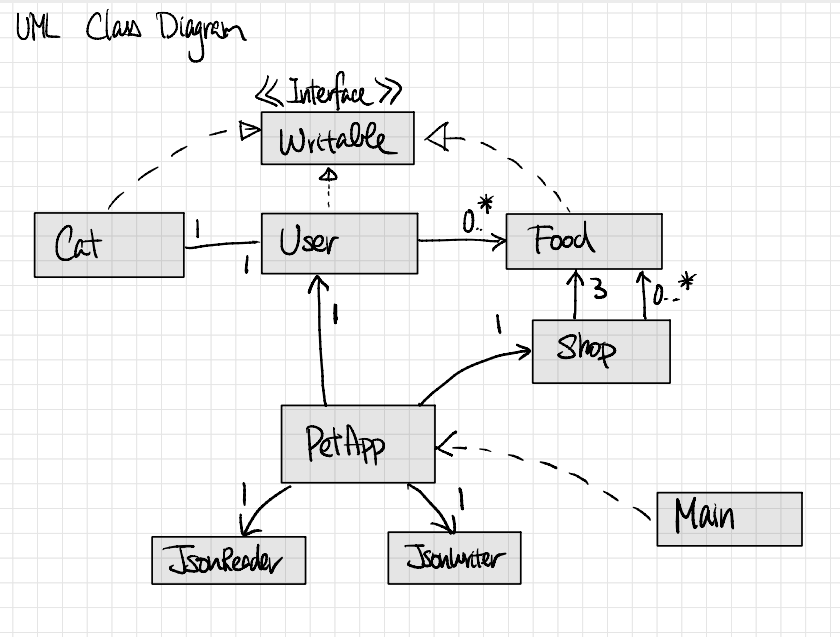 UML Class Diagram
<<Interface>>
Writable
Cat
1
1
User
0..*
Food
3
0..*
1
1
Shop
PetApp
1
1
Main
JsonReader
JsonWriter